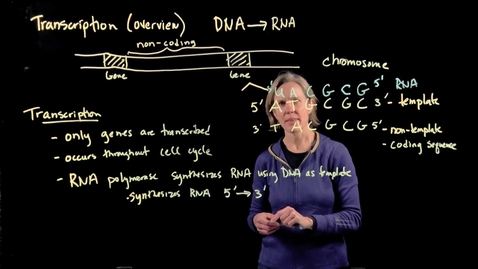 Transcription (overview) DNA → RNA
non-coding
chromosome
Gene Gene
3' U A C G C G 5' RNA
5' A T G C G C 3' - template
3' T A C G C G 5' - non-template
- coding sequence
Transcription
- only genes are transcribed
- occurs throughout cell cycle
- RNA polymerase synthesizes RNA using DNA as template
. synthesizes RNA 5' → 3'